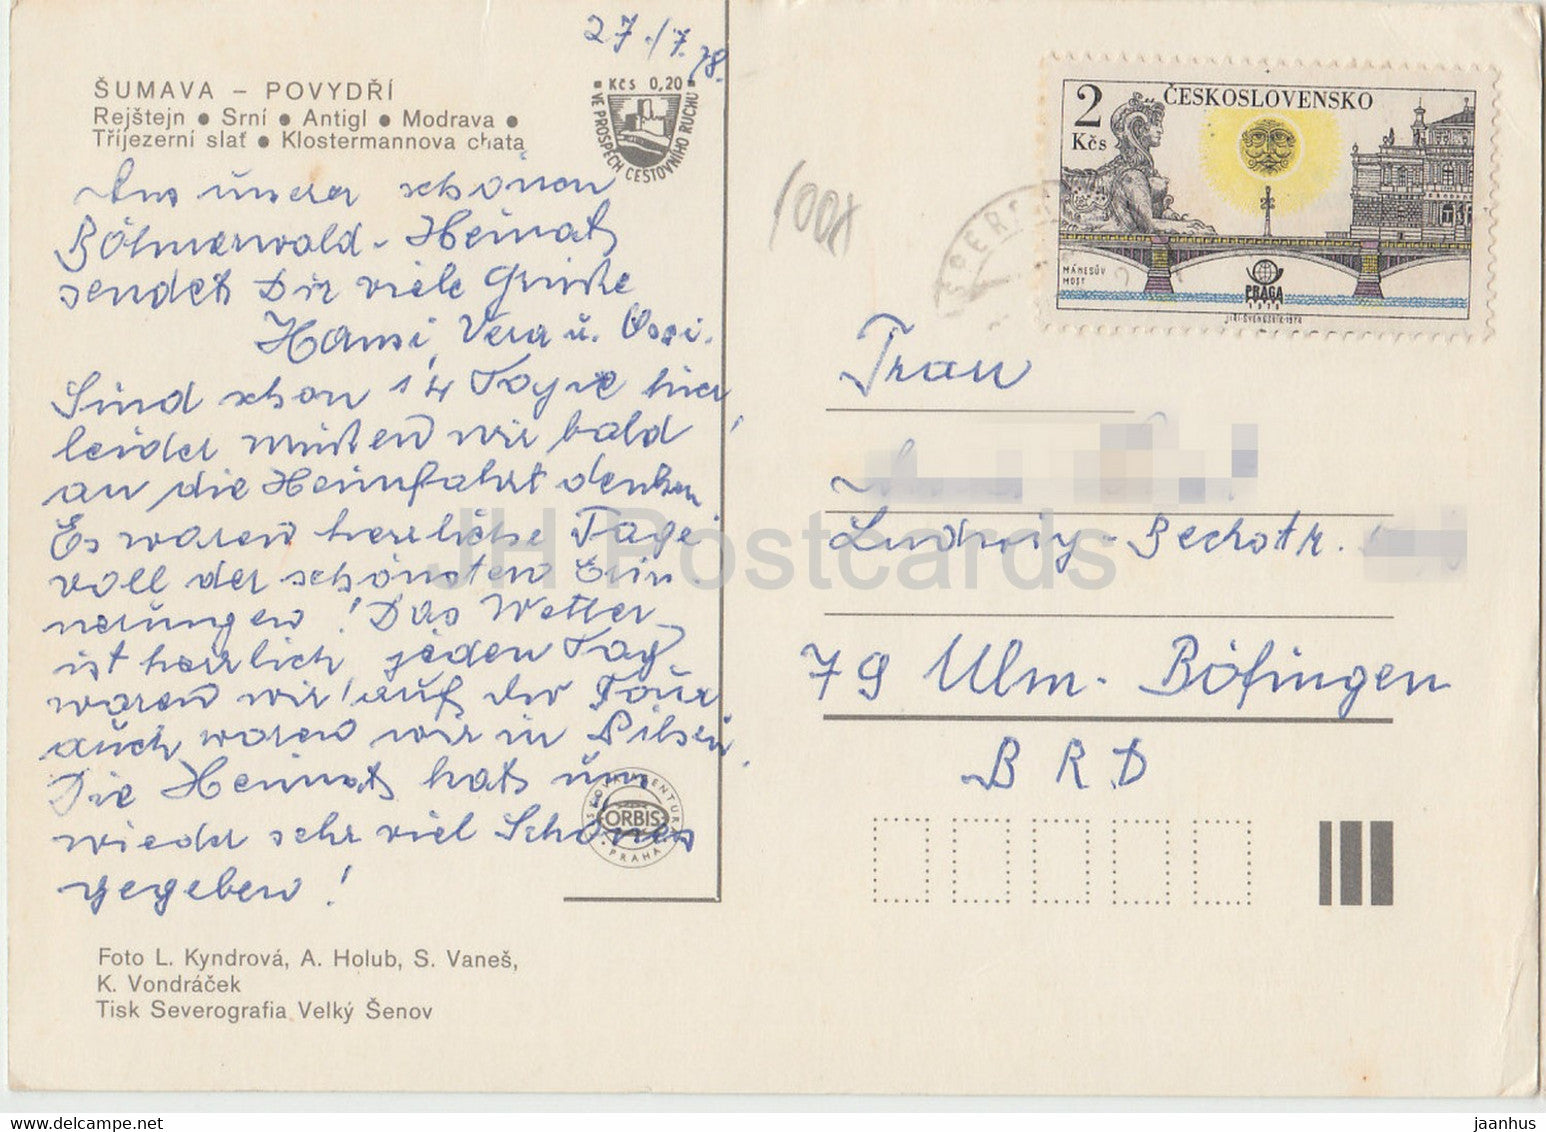 27./7.78.
ŠUMAVA – POVYDŘÍ
Rejštejn ● Srní ● Antigl ● Modrava ●
Tříjezerní slať ● Klostermannova chata
Kčs 0,20
VE PROSPĚCH CESTOVNÍHO RUCHU
Aus unserer schönen
Böhmerwald-Heimat
sendet Dir viele Grüße
Hansi, Vera u. Ossi.
Sind schon 14 Tage hier,
leider müßen wir bald
an die Heimfahrt denken.
Es waren herrliche Tage
voll der schönsten Erin-
nerungen! Das Wetter
ist herrlich jeden Tag
waren wir auf der Tour
auch waren wir in Pilsen.
Die Heimat hat uns
wieder sehr viel Schönes
gegeben!
ORBIS
PRAHA
Foto L. Kyndrová, A. Holub, S. Vaneš,
K. Vondráček
Tisk Severografia Velký Šenov
100x
2 Kčs
ČESKOSLOVENSKO
MÁNESŮV
MOST
PRAGA
1978
JIŘÍ ŠVENGSBÍR 1978
Frau
Ludwig-Bechstr.
79 Ulm-Böfingen
BRD
JH Postcards
www.delcampe.net
jaanhus